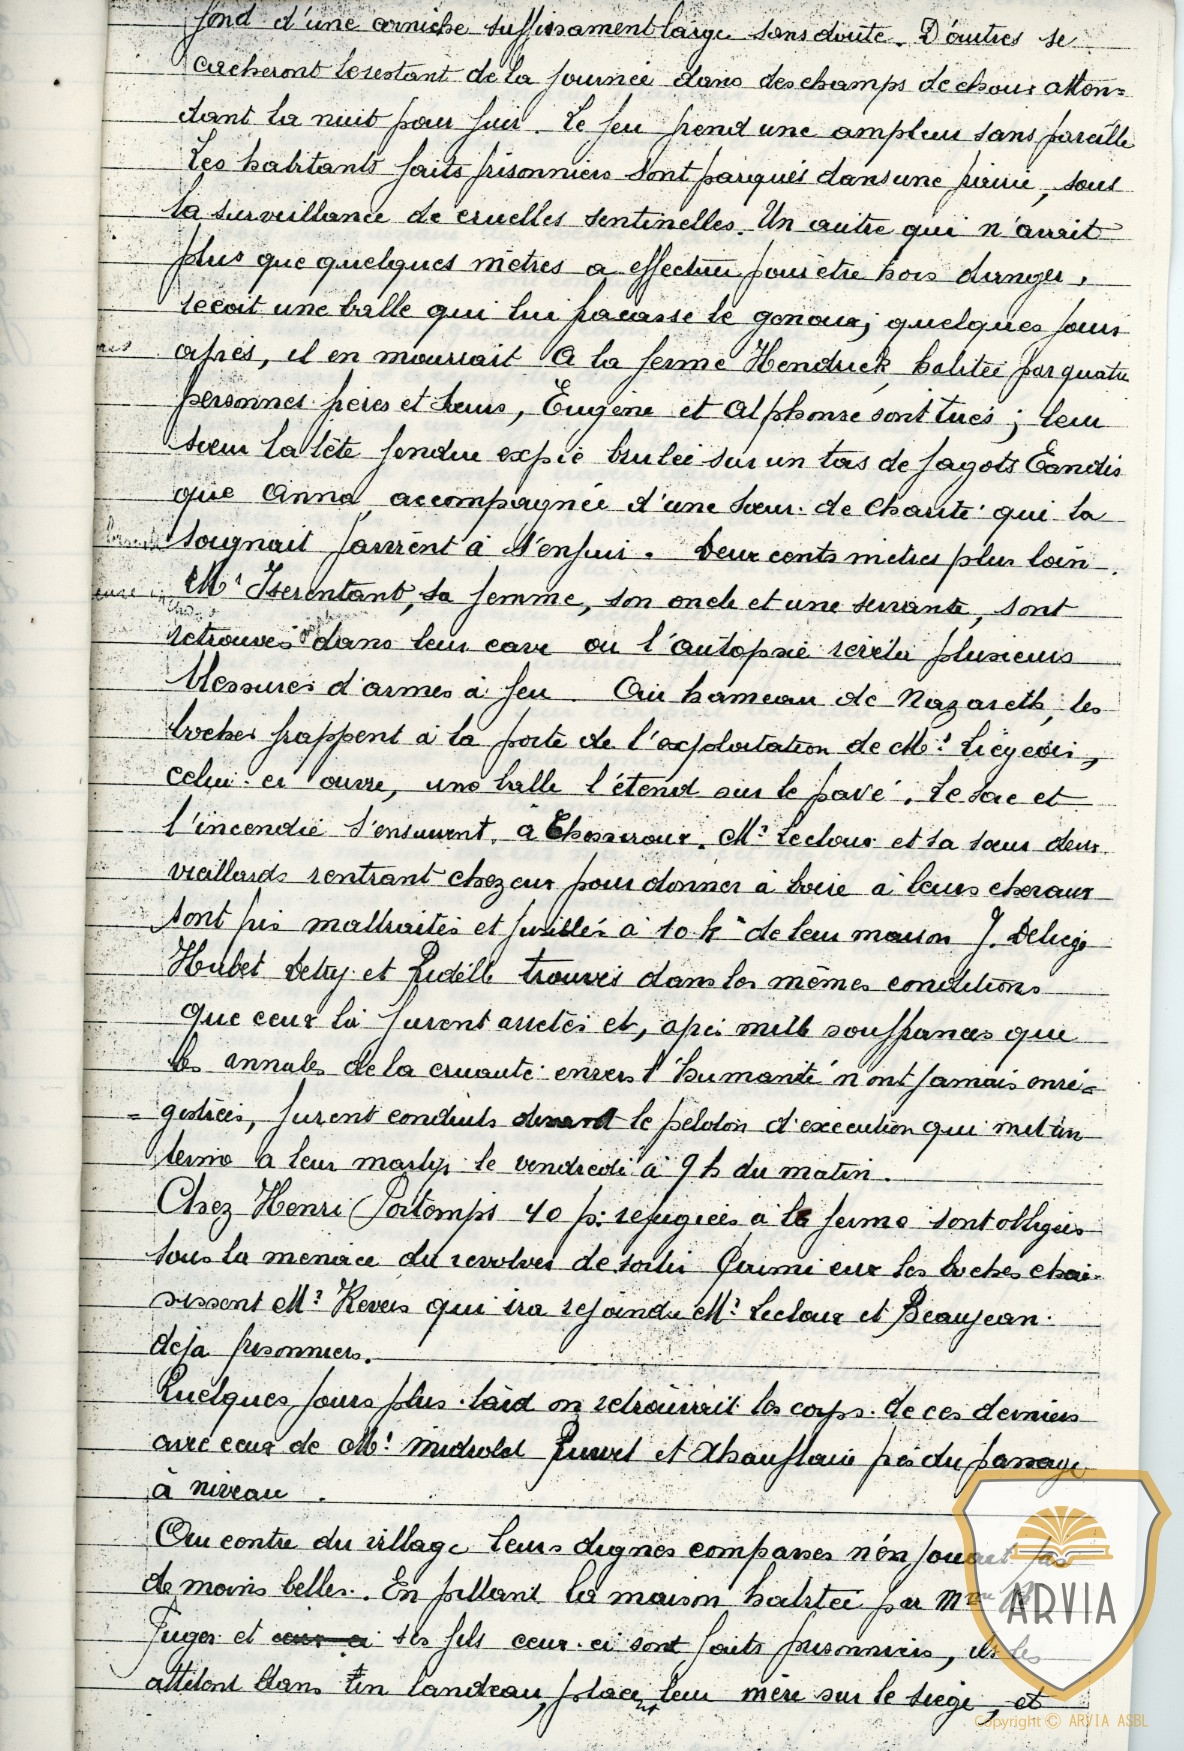 fond d'une corniche suffisament large sans doute. D'autres se
cacheront le restant de la journée dans des champs de choux atten=
dant la nuit pour fuir. Le feu prend une ampleur sans pareille
Les habitants faits prisonniers sont parqués dans une prairie, sous
la surveillance de cruelles sentinelles. Un autre qui n'avait
plus que quelques mètres a effectuer pour être hors danger,
recoit une balle qui lui fracasse le genoux; quelques jours
après, il en mourrait A la ferme Hendrick, habitée par quatre
personnes frères et sœurs, Eugène et Alphonse sont tués; leur
sœur la tête fendue expie brulée sur un tas de fagots Tandis
que Anna, accompagnée d'une sœur de Charité qui la
soignait parvient à s'enfuir. Deux cents mètres plus loin.
Mr Iserentant, sa femme, son oncle et une servante, sont
retrouvés dans leur cave ou l'autopsie révéla plusieurs
blessures d'armes à feu Au hameau de Nazareth, les
boches frappent à la porte de l'exploitation de Mr Liégeois,
celui-ci ouvre, une balle l'étend sur le pavé. Le sac et
l'incendie s'ensuivent. à Thosseroux. Mr Lecloux et sa sœur deux
vieillards rentrant chez eux pour donner à boire à leurs chevaux
sont pris maltraités et fusillés à 10 k de leur maison J. Deliège
Hubet Detry et Pudelle trouvés dans les mêmes conditions
que ceux là furent arretés et, après mille souffrances que
les annales de la cruauté envers l'humanité n'ont jamais enré=
= gistrées, furent conduits devant le peloton d'exécution qui mit un
terme a leur martyr le vendredi à 9 h du matin.
Chez Henri Portomps 40 p. refugiées à la ferme sont obligées
sous la menace du revolver de sortir Parmi eux les boches choi-
sissent Mr Kevers qui ira rejoindre Mr Lecloux et Beaujean
deja prisonniers.
Quelques jours plus tard on retrouvait les corps de ces derniers
avec ceux de Mr Midrolet et Xhauflaire près du passage
à niveau.
Au centre du village leurs dignes comparses n'en jouait pas
de moins belles. En pillant la maison habitée par Mme
Fuger et ceux-ci ses fils ceux-ci sont faits prisonniers, ils les
attelent dans un landeau, placent leur mère sur le siège, et
ARVIA
Copyright © ARVIA ASBL